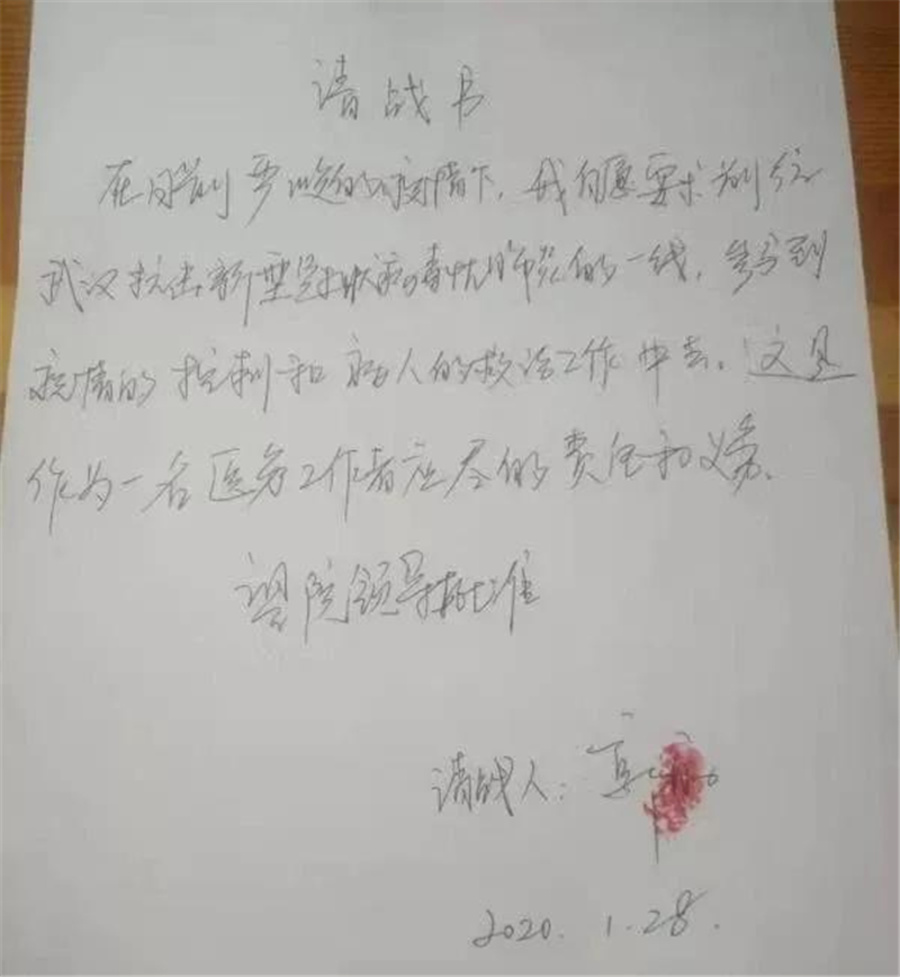 请战书
在目前严峻的疫情下，我自愿要求前往
武汉抗击新型冠状病毒性肺炎的一线，参与到
疫情的控制和病人的救治工作中去。这是
作为一名医务工作者应尽的责任和义务、
望院领导批准
请战人：
2020.1.28.